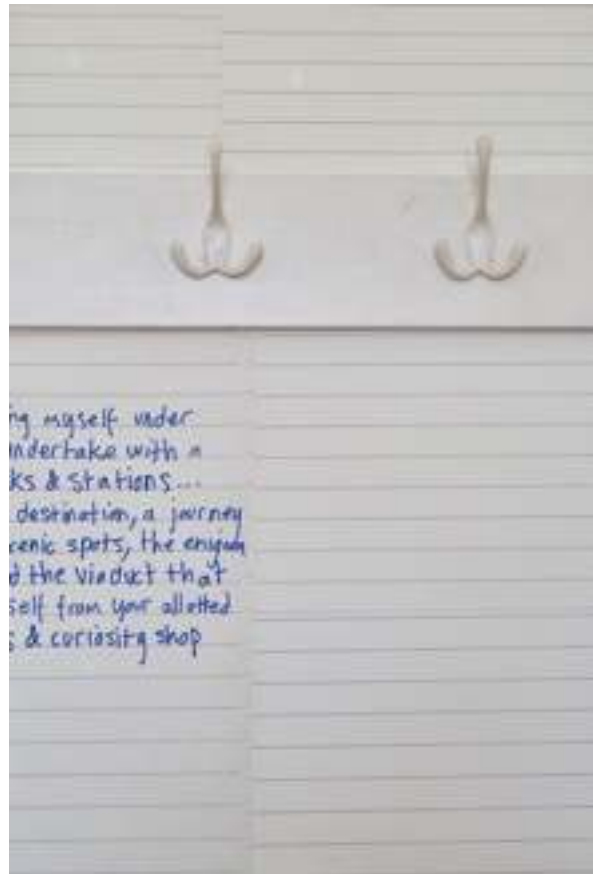 ng myself under
undertake with a
ks & stations...
destination, a journey
cenic spots, the enigma
d the viaduct that
self from your allotted
s & curiosity shop